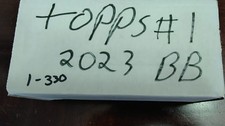 topps #1
2023 BB
1-330